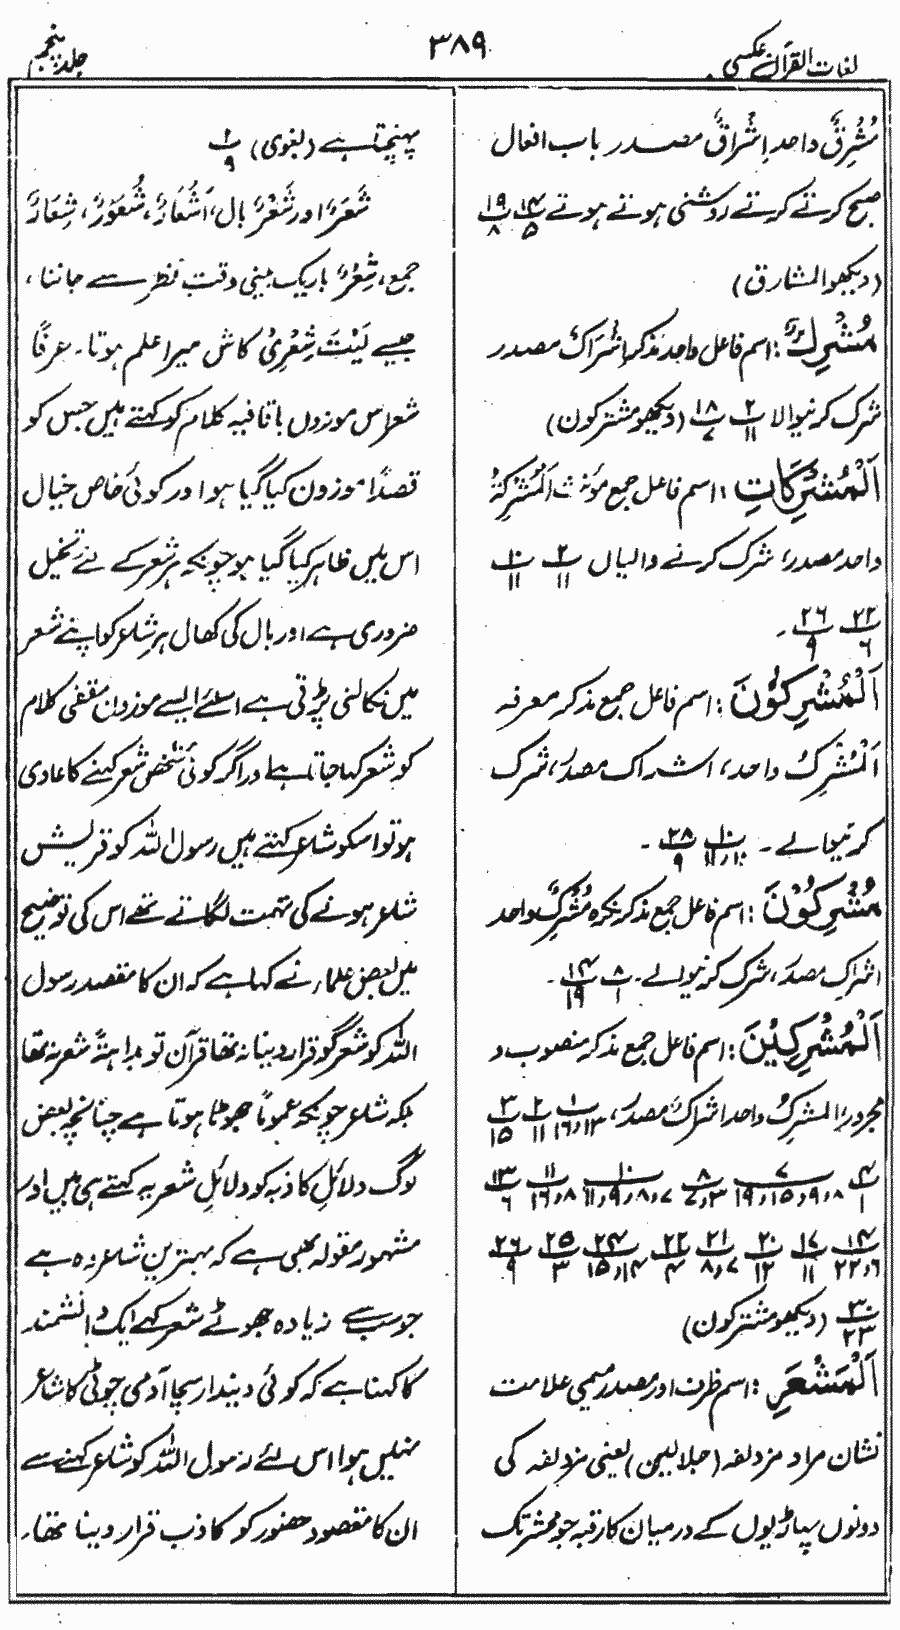 لغات القرآن عکسی
۳۸۹
جلد پنجم
مُشْرِقٌ واحد اِشْرَاقٌ مصدر باب افعال
صبح کرتے کرتے روشنی ہوتے ہوتے ۱۴/۵ ۱۹/۸
(دیکھو المشارق)
مُشْرِكٌ: اسم فاعل واحد مذکر اِشْرَاكٌ مصدر
شرک کرنیوالا ۲/۱۱ ۱۸/۷ (دیکھو مشترکون)
اَلْمُشْرِكَاتِ: اسم فاعل جمع مؤنث اَلْمُشْرِكَةُ
واحد مصدر، شرک کرنے والیاں ۲/۱۱ ۱۰/۱۱
۲۲/۶ ۲۶/۹ ۔
اَلْمُشْرِكُوْنَ: اسم فاعل جمع مذکر معرفہ
اَلْمُشْرِكُ واحد، اشراک مصدر، شرک
کرنیوالے ۔ ۱۰/۱۰،۱۱ ۲۸/۹ ۔
مُشْرِكُوْنَ: اسم فاعل جمع مذکر نکرہ مُشْرِكٌ واحد
اشراک مصدر، شرک کرنیوالے۔ ۸/۱ ۱۴/۱۹ ۔
اَلْمُشْرِكِيْنَ: اسم فاعل جمع مذکر منصوب و
مجرور، المشرک واحد اشراک مصدر، ۱/۱۳،۱۶ ۲/۱۱ ۳/۱۵
۴/۱ ۷/۸،۹،۱۵،۱۹ ۸/۳،۷ ۱۰/۷،۸،۹،۱۱ ۱۱/۸،۱۶ ۱۳/۶
۱۴/۶،۲۲ ۱۷/۱۱ ۲۰/۱۲ ۲۱/۷،۸ ۲۲/۴ ۲۴/۱۴،۱۵ ۲۵/۳ ۲۶/۹
۳۰/۲۳ (دیکھو مشترکون)
اَلْمَشْعَرِ: اسم ظرف اور مصدر میمی علامت
نشان مراد مزدلفہ (جلالین) یعنی مزدلفہ کی
دونوں پہاڑیوں کے درمیان کا رقبہ جو محشر تک
پہنچتا ہے (بغوی) ۲/۹
شَعَرٌ اور شَعْرٌ بال، اَشْعَارٌ، شُعُوْرٌ، شِعَارٌ
جمع، شِعْرٌ باریک بینی دقت نظر سے جاننا،
جیسے لَیْتَ شِعْرِیْ کاش میرا علم ہوتا۔ عرفًا
شعر اس موزوں با قافیہ کلام کو کہتے ہیں جس کو
قصدًا موزون کیا گیا ہو اور کوئی خاص خیال
اس میں ظاہر کیا گیا ہو چونکہ ہر شعر کے لئے تخیل
ضروری ہے اور بال کی کھال ہر شاعر کو اپنے شعر
میں نکالنی پڑتی ہے اسلئے ایسے موزون مقفی کلام
کو شعر کہا جاتا ہے اور اگر کوئی شخص شعر کہنے کا عادی
ہو تو اسکو شاعر کہتے ہیں رسول اللہ کو قریش
شاعر ہونے کی تہمت لگاتے تھے اس کی توضیح
میں بعض علماء نے کہا ہے کہ ان کا مقصد رسول
اللہ کو شعر گو قرار دینا نہ تھا قرآن تو بداہتہً شعر نہ تھا
بلکہ شاعر چونکہ عمومًا جھوٹا ہوتا ہے چنانچہ بعض
لوگ دلائلِ کاذبہ کو دلائلِ شعریہ کہتے ہی ہیں اور
مشہور مقولہ بھی ہے کہ بہترین شاعر وہ ہے
جو سب سے زیادہ جھوٹے شعر کہے ایک دانشمند
کا کہنا ہے کہ کوئی دیندار سچا آدمی چوٹی کا شاعر
نہیں ہوا اس لئے رسول اللہ کو شاعر کہنے سے
ان کا مقصود حضور کو کاذب قرار دینا تھا۔